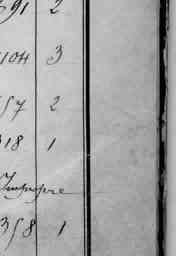 691 2
1104 3
557 2
318 1
Impropre
358 1